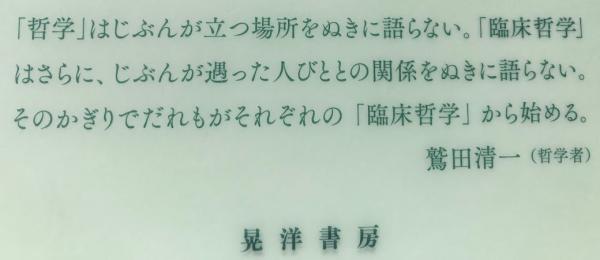 「哲学」はじぶんが立つ場所をぬきに語らない。「臨床哲学」
はさらに、じぶんが遇った人びととの関係をぬきに語らない。
そのかぎりでだれもがそれぞれの「臨床哲学」から始める。
鷲田清一（哲学者）
晃洋書房